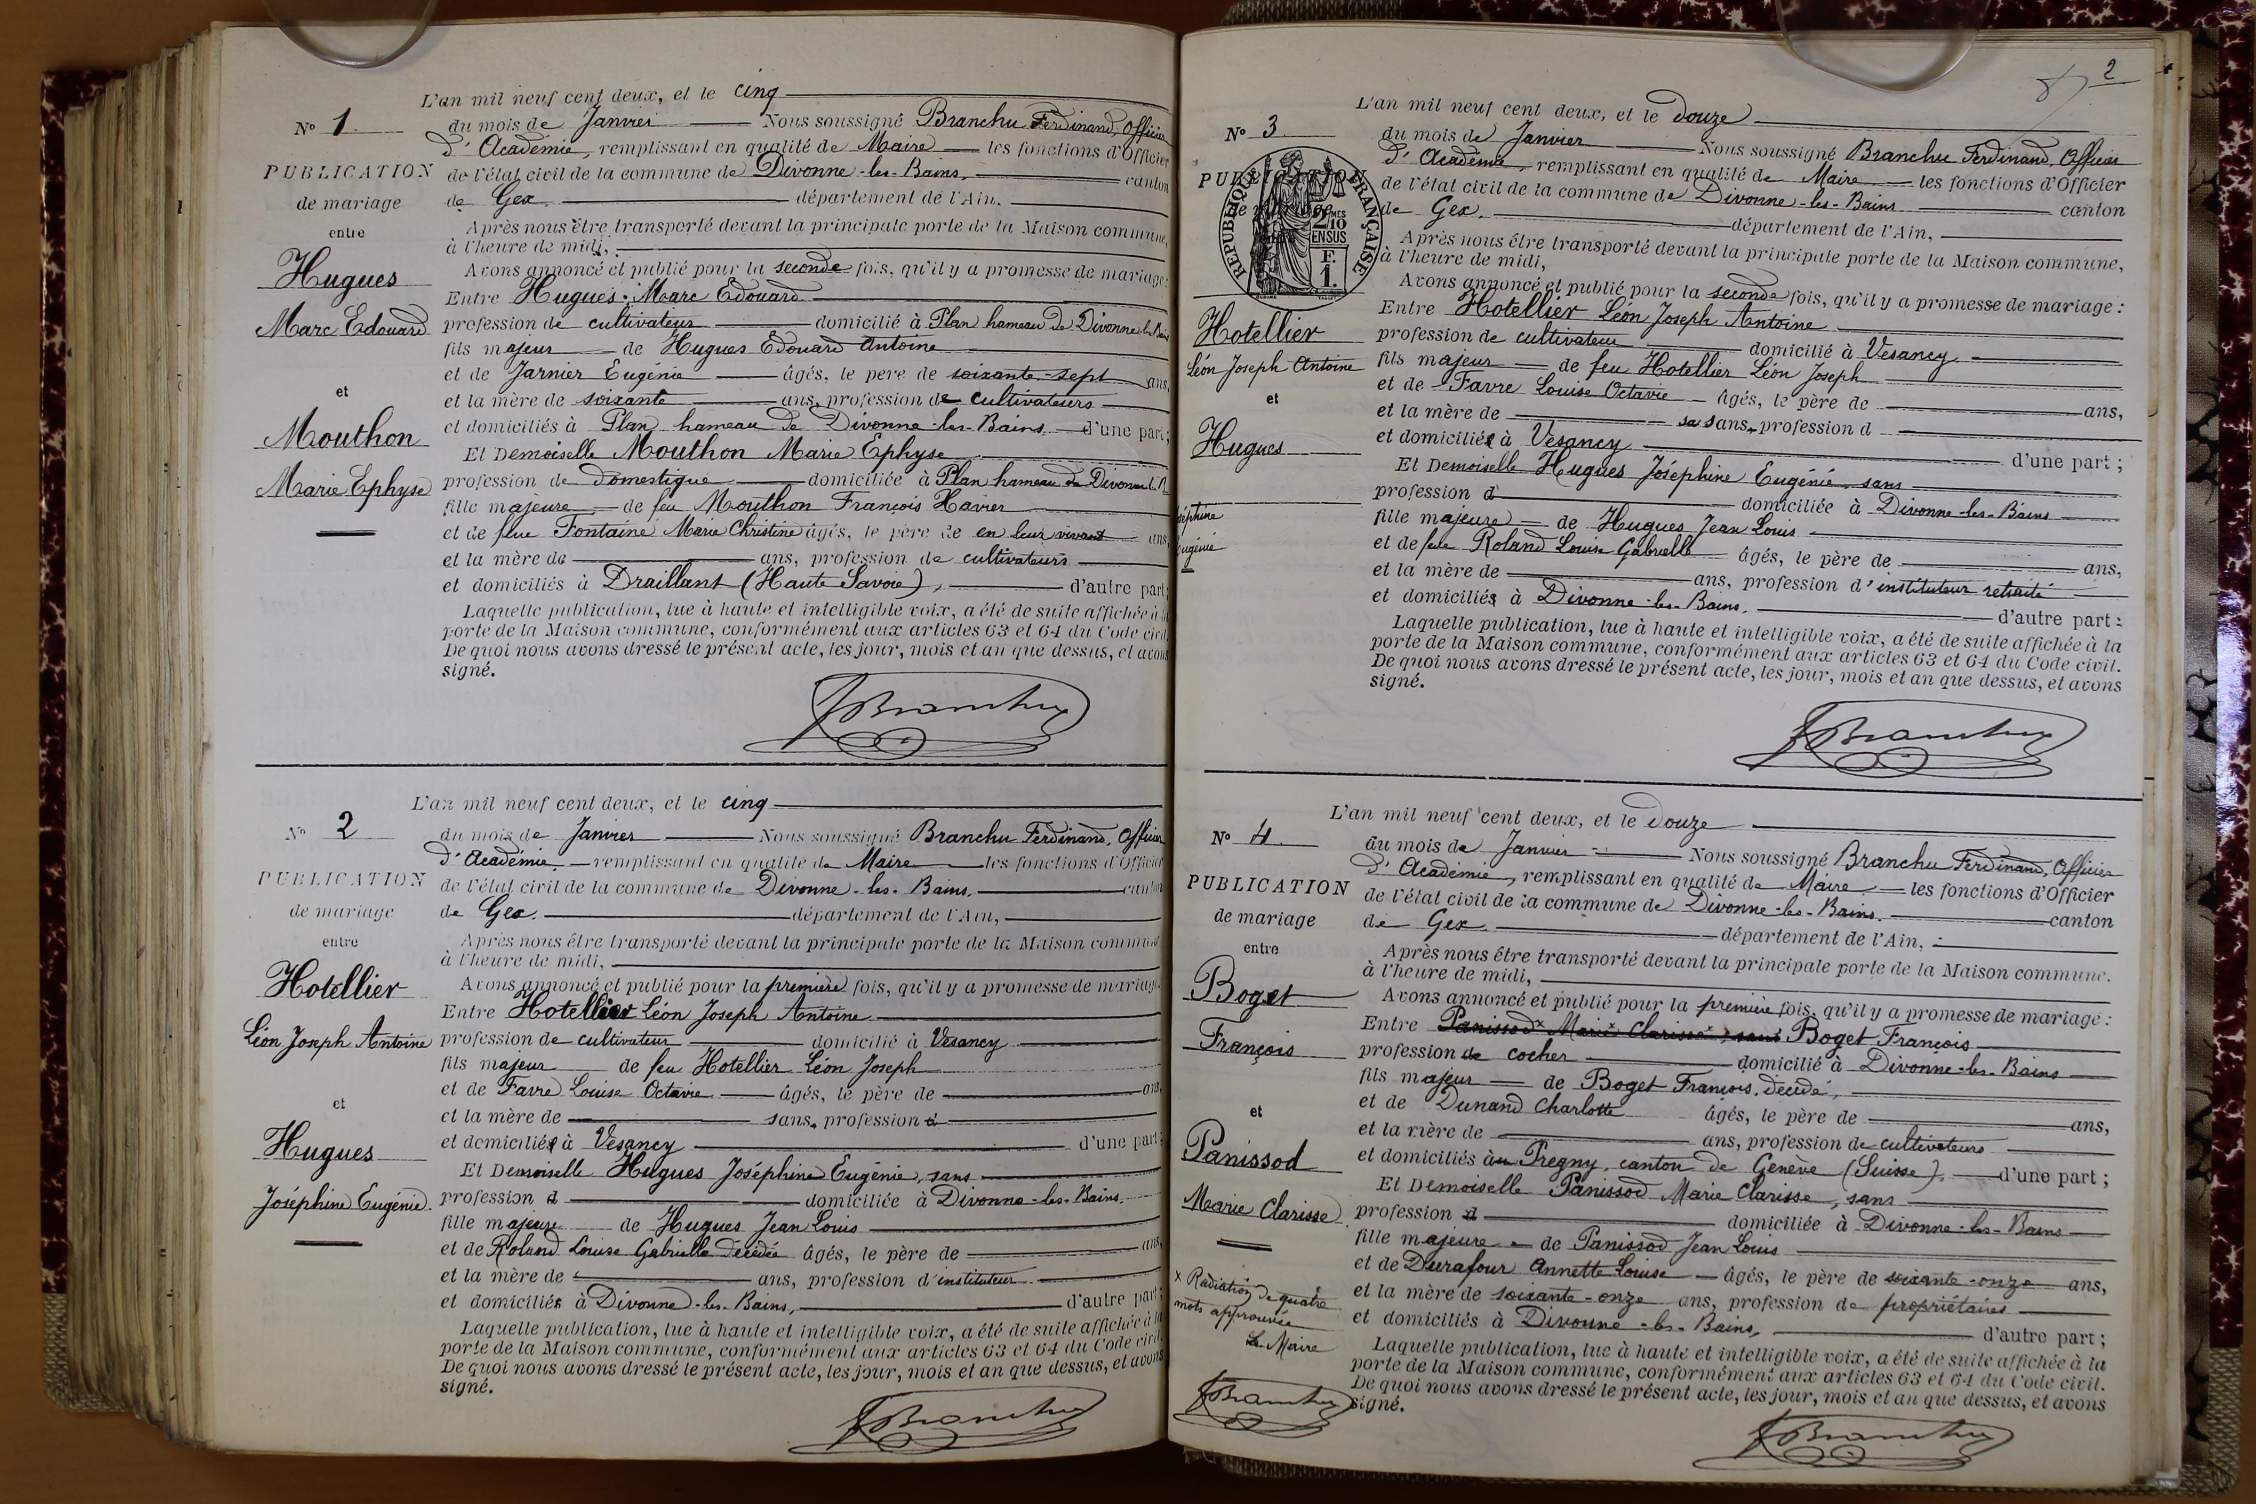 L'an mil neuf cent deux, et le cinq
N° 1.
du mois de Janvier Nous soussigné Branchu Ferdinand, Officier
d'Académie, remplissant en qualité de Maire les fonctions d'Officier
PUBLICATION
de l'état civil de la commune de Divonne-les-Bains, canton
de mariage
de Gex. département de l'Ain.
entre
Après nous être transporté devant la principale porte de la Maison commune,
à l'heure de midi,
Hugues
Avons annoncé et publié pour la seconde fois, qu'il y a promesse de mariage:
Entre Hugues Marc Edouard
Marc Edouard
profession de cultivateur domicilié à Plan hameau de Divonne-les-Bains
fils majeur de Hugues Edouard Antoine
et de Jarnier Eugénie âgés, le père de soixante-sept ans,
et
et la mère de soixante ans, profession de cultivateurs
et domiciliés à Plan hameau de Divonne-les-Bains, d'une part;
Mouthon
Et Demoiselle Mouthon Marie Ephyse
Marie Ephyse
profession de domestique domiciliée à Plan hameau de Divonne
fille majeure de feu Mouthon François Xavier
et de feue Fontaine Marie Christine âgés, le père de en leur vivant ans,
et la mère de ans, profession de cultivateurs
et domiciliés à Draillant (Haute Savoie), d'autre part;
Laquelle publication, lue à haute et intelligible voix, a été de suite affichée à la
porte de la Maison commune, conformément aux articles 63 et 64 du Code civil.
De quoi nous avons dressé le présent acte, les jour, mois et an que dessus, et avons
signé.
FBranchu
L'an mil neuf cent deux, et le cinq
N° 2
du mois de Janvier Nous soussigné Branchu Ferdinand, Officier
d'Académie, remplissant en qualité de Maire les fonctions d'Officier
PUBLICATION
de l'état civil de la commune de Divonne-les-Bains, canton
de mariage
de Gex. département de l'Ain,
entre
Après nous être transporté devant la principale porte de la Maison commune
à l'heure de midi,
Hotellier
Avons annoncé et publié pour la première fois, qu'il y a promesse de mariage.
Entre Hotellier Léon Joseph Antoine
Léon Joseph Antoine
profession de cultivateur domicilié à Vesancy
fils majeur de feu Hotellier Léon Joseph
et de Favre Louise Octavie âgés, le père de ans,
et
et la mère de sans, profession d
et domiciliés à Vesancy d'une part;
Hugues
Et Demoiselle Hugues Joséphine Eugénie, sans
Joséphine Eugénie.
profession d domiciliée à Divonne-les-Bains.
fille majeure de Hugues Jean Louis
et de Roland Louise Gabrielle décédée âgés, le père de ans,
et la mère de ans, profession d'instituteur
et domiciliés à Divonne-les-Bains, d'autre part;
Laquelle publication, lue à haute et intelligible voix, a été de suite affichée à la
porte de la Maison commune, conformément aux articles 63 et 64 du Code civil.
De quoi nous avons dressé le présent acte, les jour, mois et an que dessus, et avons
signé.
FBranchu
2
L'an mil neuf cent deux, et le douze
N° 3
du mois de Janvier Nous soussigné Branchu Ferdinand, Officier
d'Académie, remplissant en qualité de Maire les fonctions d'Officier
PUBLICATION
de l'état civil de la commune de Divonne-les-Bains canton
de mariage
de Gex. département de l'Ain,
RÉPUBLIQUE FRANÇAISE
2/10 MES
EN SUS
F.
1.
Après nous être transporté devant la principale porte de la Maison commune,
à l'heure de midi,
Avons annoncé et publié pour la seconde fois, qu'il y a promesse de mariage:
Entre Hotellier Léon Joseph Antoine
Hotellier
profession de cultivateur domicilié à Vesancy
Léon Joseph Antoine
fils majeur de feu Hotellier Léon Joseph
et de Favre Louise Octavie âgés, le père de ans,
et
et la mère de sans, profession d
et domiciliés à Vesancy d'une part;
Hugues
Et Demoiselle Hugues Joséphine Eugénie, sans
profession d domiciliée à Divonne-les-Bains
Joséphine
fille majeure de Hugues Jean Louis
Eugénie
et de feue Roland Louise Gabrielle âgés, le père de ans,
et la mère de ans, profession d'instituteur retraité
et domiciliés à Divonne-les-Bains, d'autre part:
Laquelle publication, lue à haute et intelligible voix, a été de suite affichée à la
porte de la Maison commune, conformément aux articles 63 et 64 du Code civil.
De quoi nous avons dressé le présent acte, les jour, mois et an que dessus, et avons
signé.
FBranchu
L'an mil neuf cent deux, et le douze
N° 4
du mois de Janvier Nous soussigné Branchu Ferdinand, Officier
d'Académie, remplissant en qualité de Maire les fonctions d'Officier
PUBLICATION
de l'état civil de la commune de Divonne-les-Bains. canton
de mariage
de Gex. département de l'Ain,
entre
Après nous être transporté devant la principale porte de la Maison commune.
à l'heure de midi,
Boget
Avons annoncé et publié pour la première fois, qu'il y a promesse de mariage:
Entre Panissod Marie Clarisse, sans Boget François
François
profession de cocher domicilié à Divonne-les-Bains
fils majeur de Boget François, décédé,
et de Dunand Charlotte âgés, le père de ans,
et
et la mère de ans, profession de cultivateurs
et domiciliés au Pregny, canton de Genève (Suisse), d'une part;
Panissod
Et Demoiselle Panissod Marie Clarisse, sans
Marie Clarisse
profession d domiciliée à Divonne-les-Bains
fille majeure de Panissod Jean Louis
et de Durafour Annette Louise âgés, le père de soixante-onze ans,
x Radiation de quatre
et la mère de soixante-onze ans, profession de propriétaires
mots approuvée
et domiciliés à Divonne-les-Bains, d'autre part;
Le Maire
Laquelle publication, lue à haute et intelligible voix, a été de suite affichée à la
porte de la Maison commune, conformément aux articles 63 et 64 du Code civil.
De quoi nous avons dressé le présent acte, les jour, mois et an que dessus, et avons
FBranchu
signé.
FBranchu